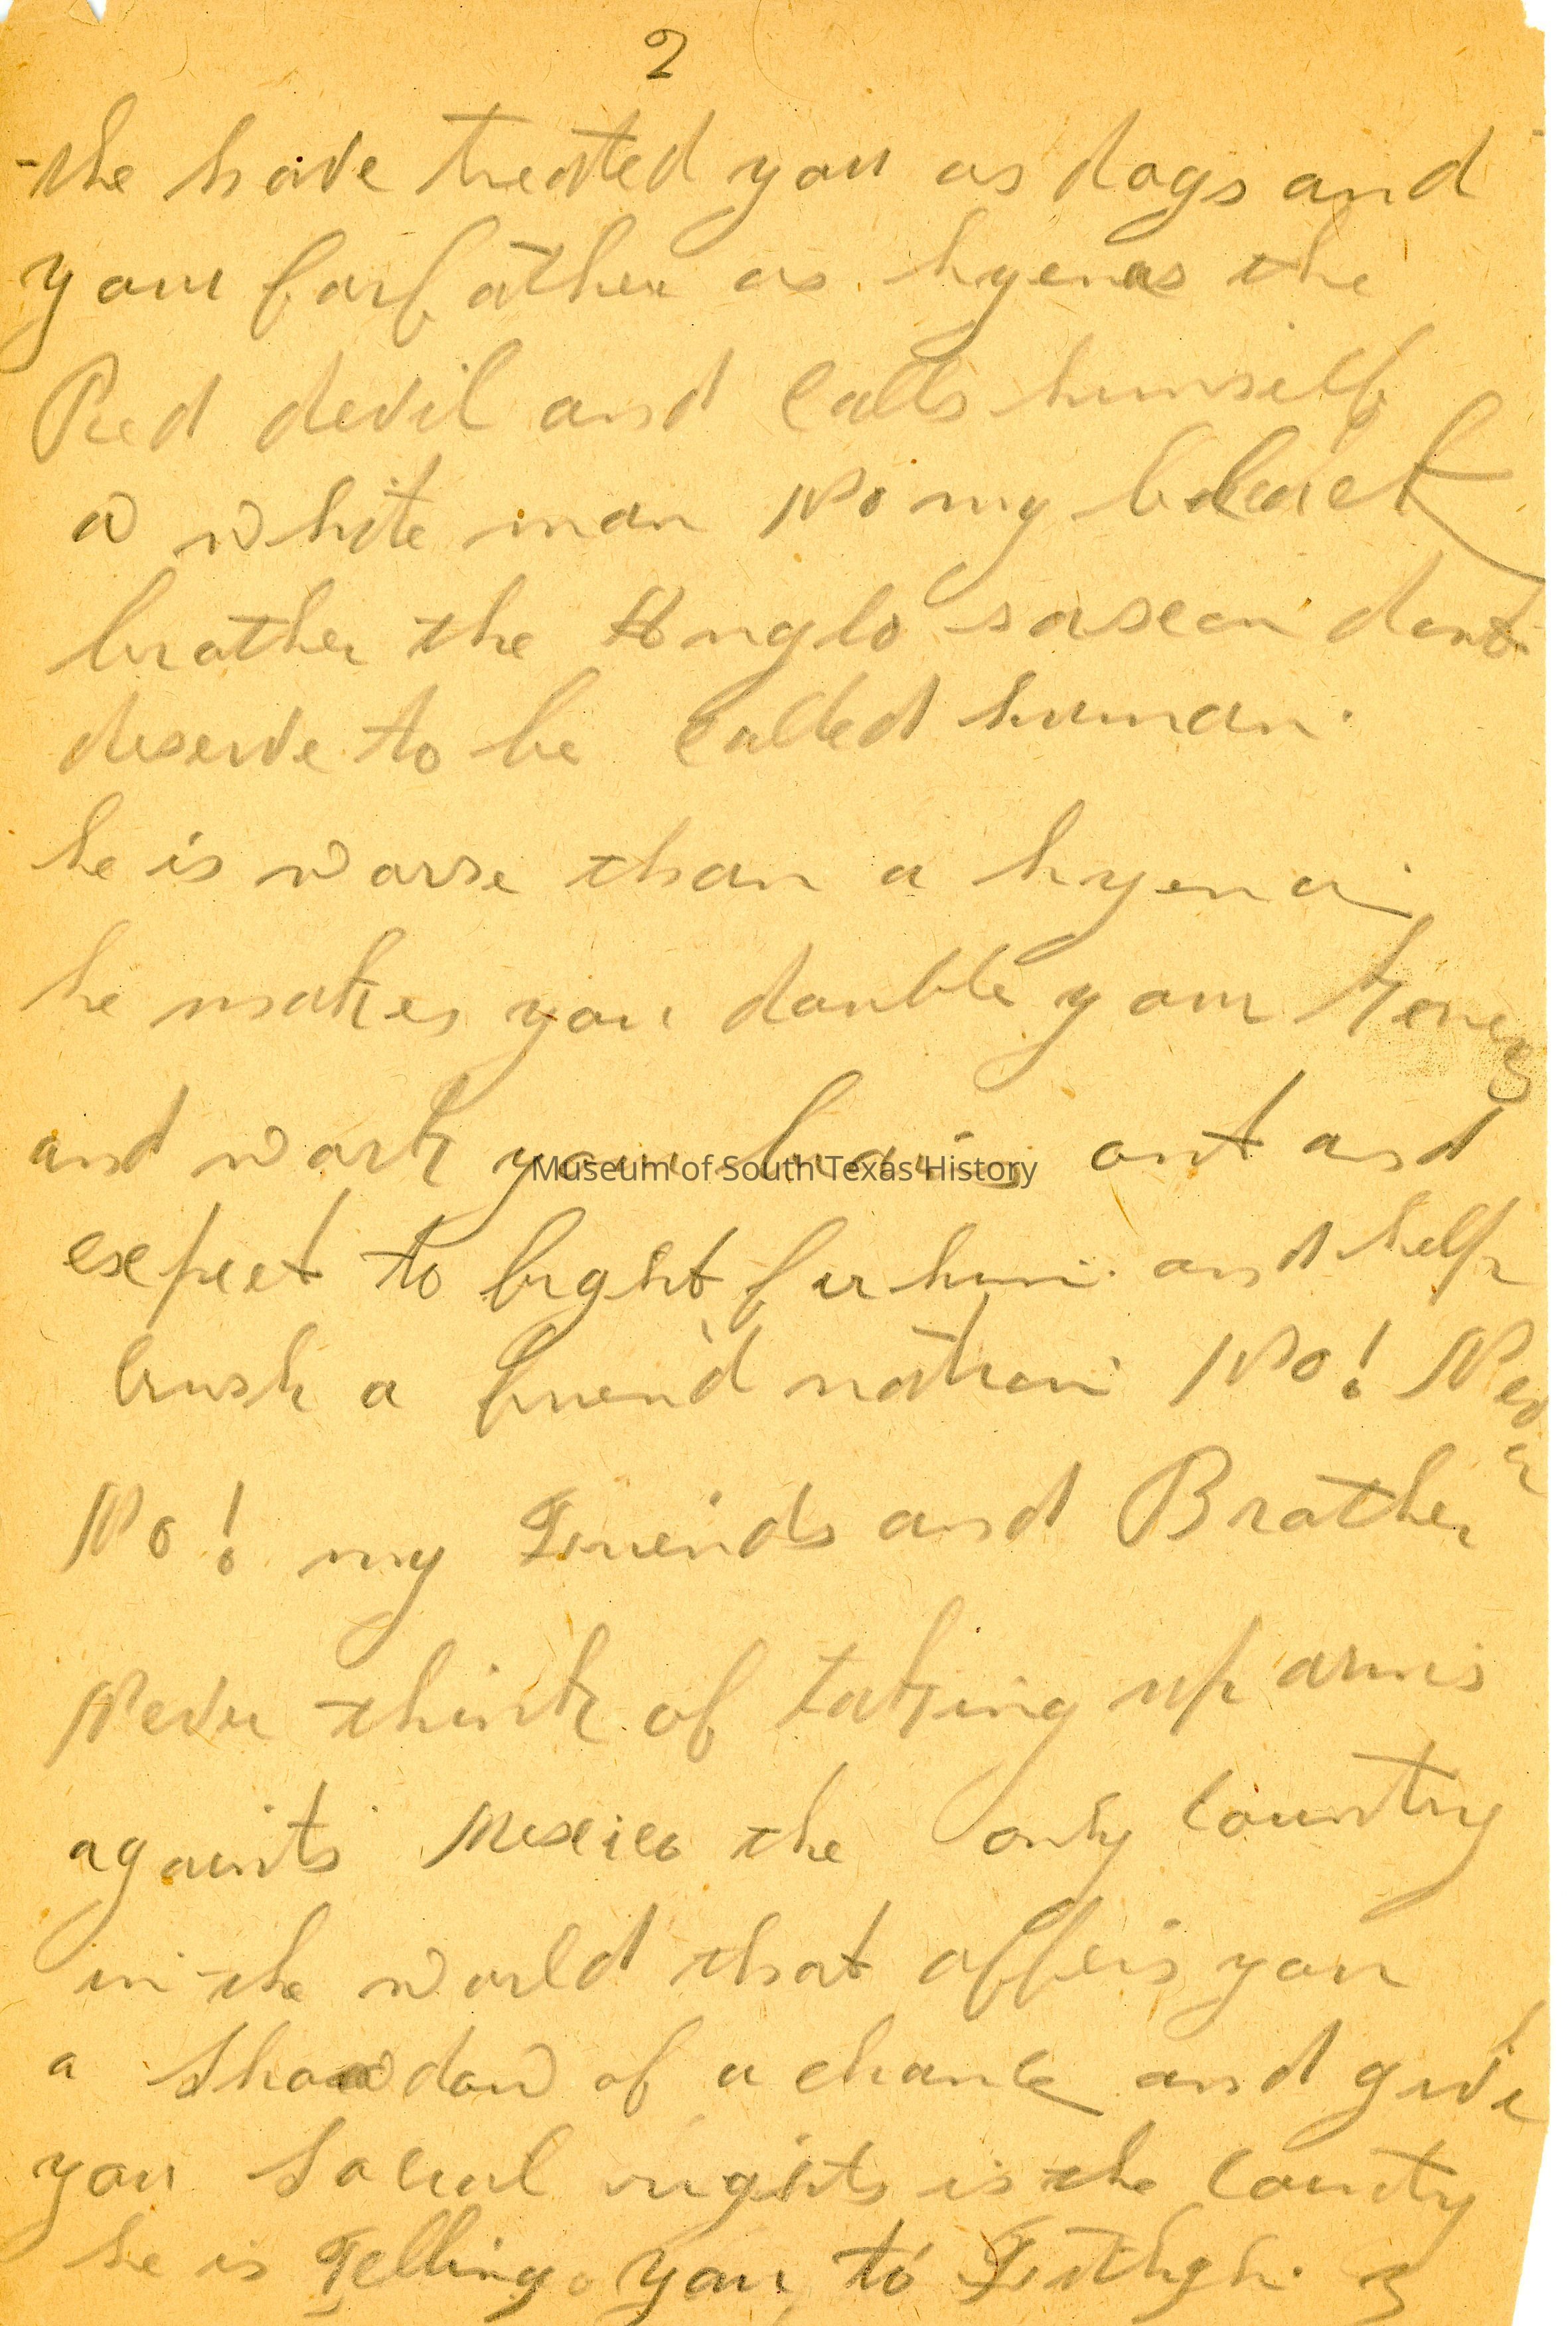 2
the have treated you as dogs and
your forfather as hyenas the
Red devil and calls himself
a white man No my black
brother the Anglo saxcan dont
deserve to be called human.
he is worse than a hyena.
he makes you double your
and work your brains out and
expect to fight fur him. and help
crush a friend nation No! Never
No! my Friends and Brother
Never think of taking up arms
againts Mexico the only country
in the world that offers you
a Shawdow of a chance and give
you Social rights is the county
he is Telling you to
Museum of South Texas History